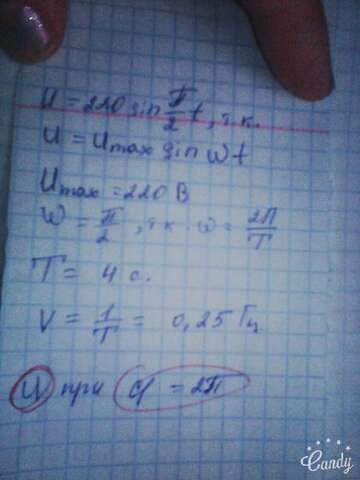 U = 220 sin π/2 t, т.к.
U = Umax sin ωt
Umax = 220 В
ω = π/2, т.к. ω = 2π/T
T = 4 с.
ν = 1/T = 0,25 Гц
U при φ = 2π
Candy